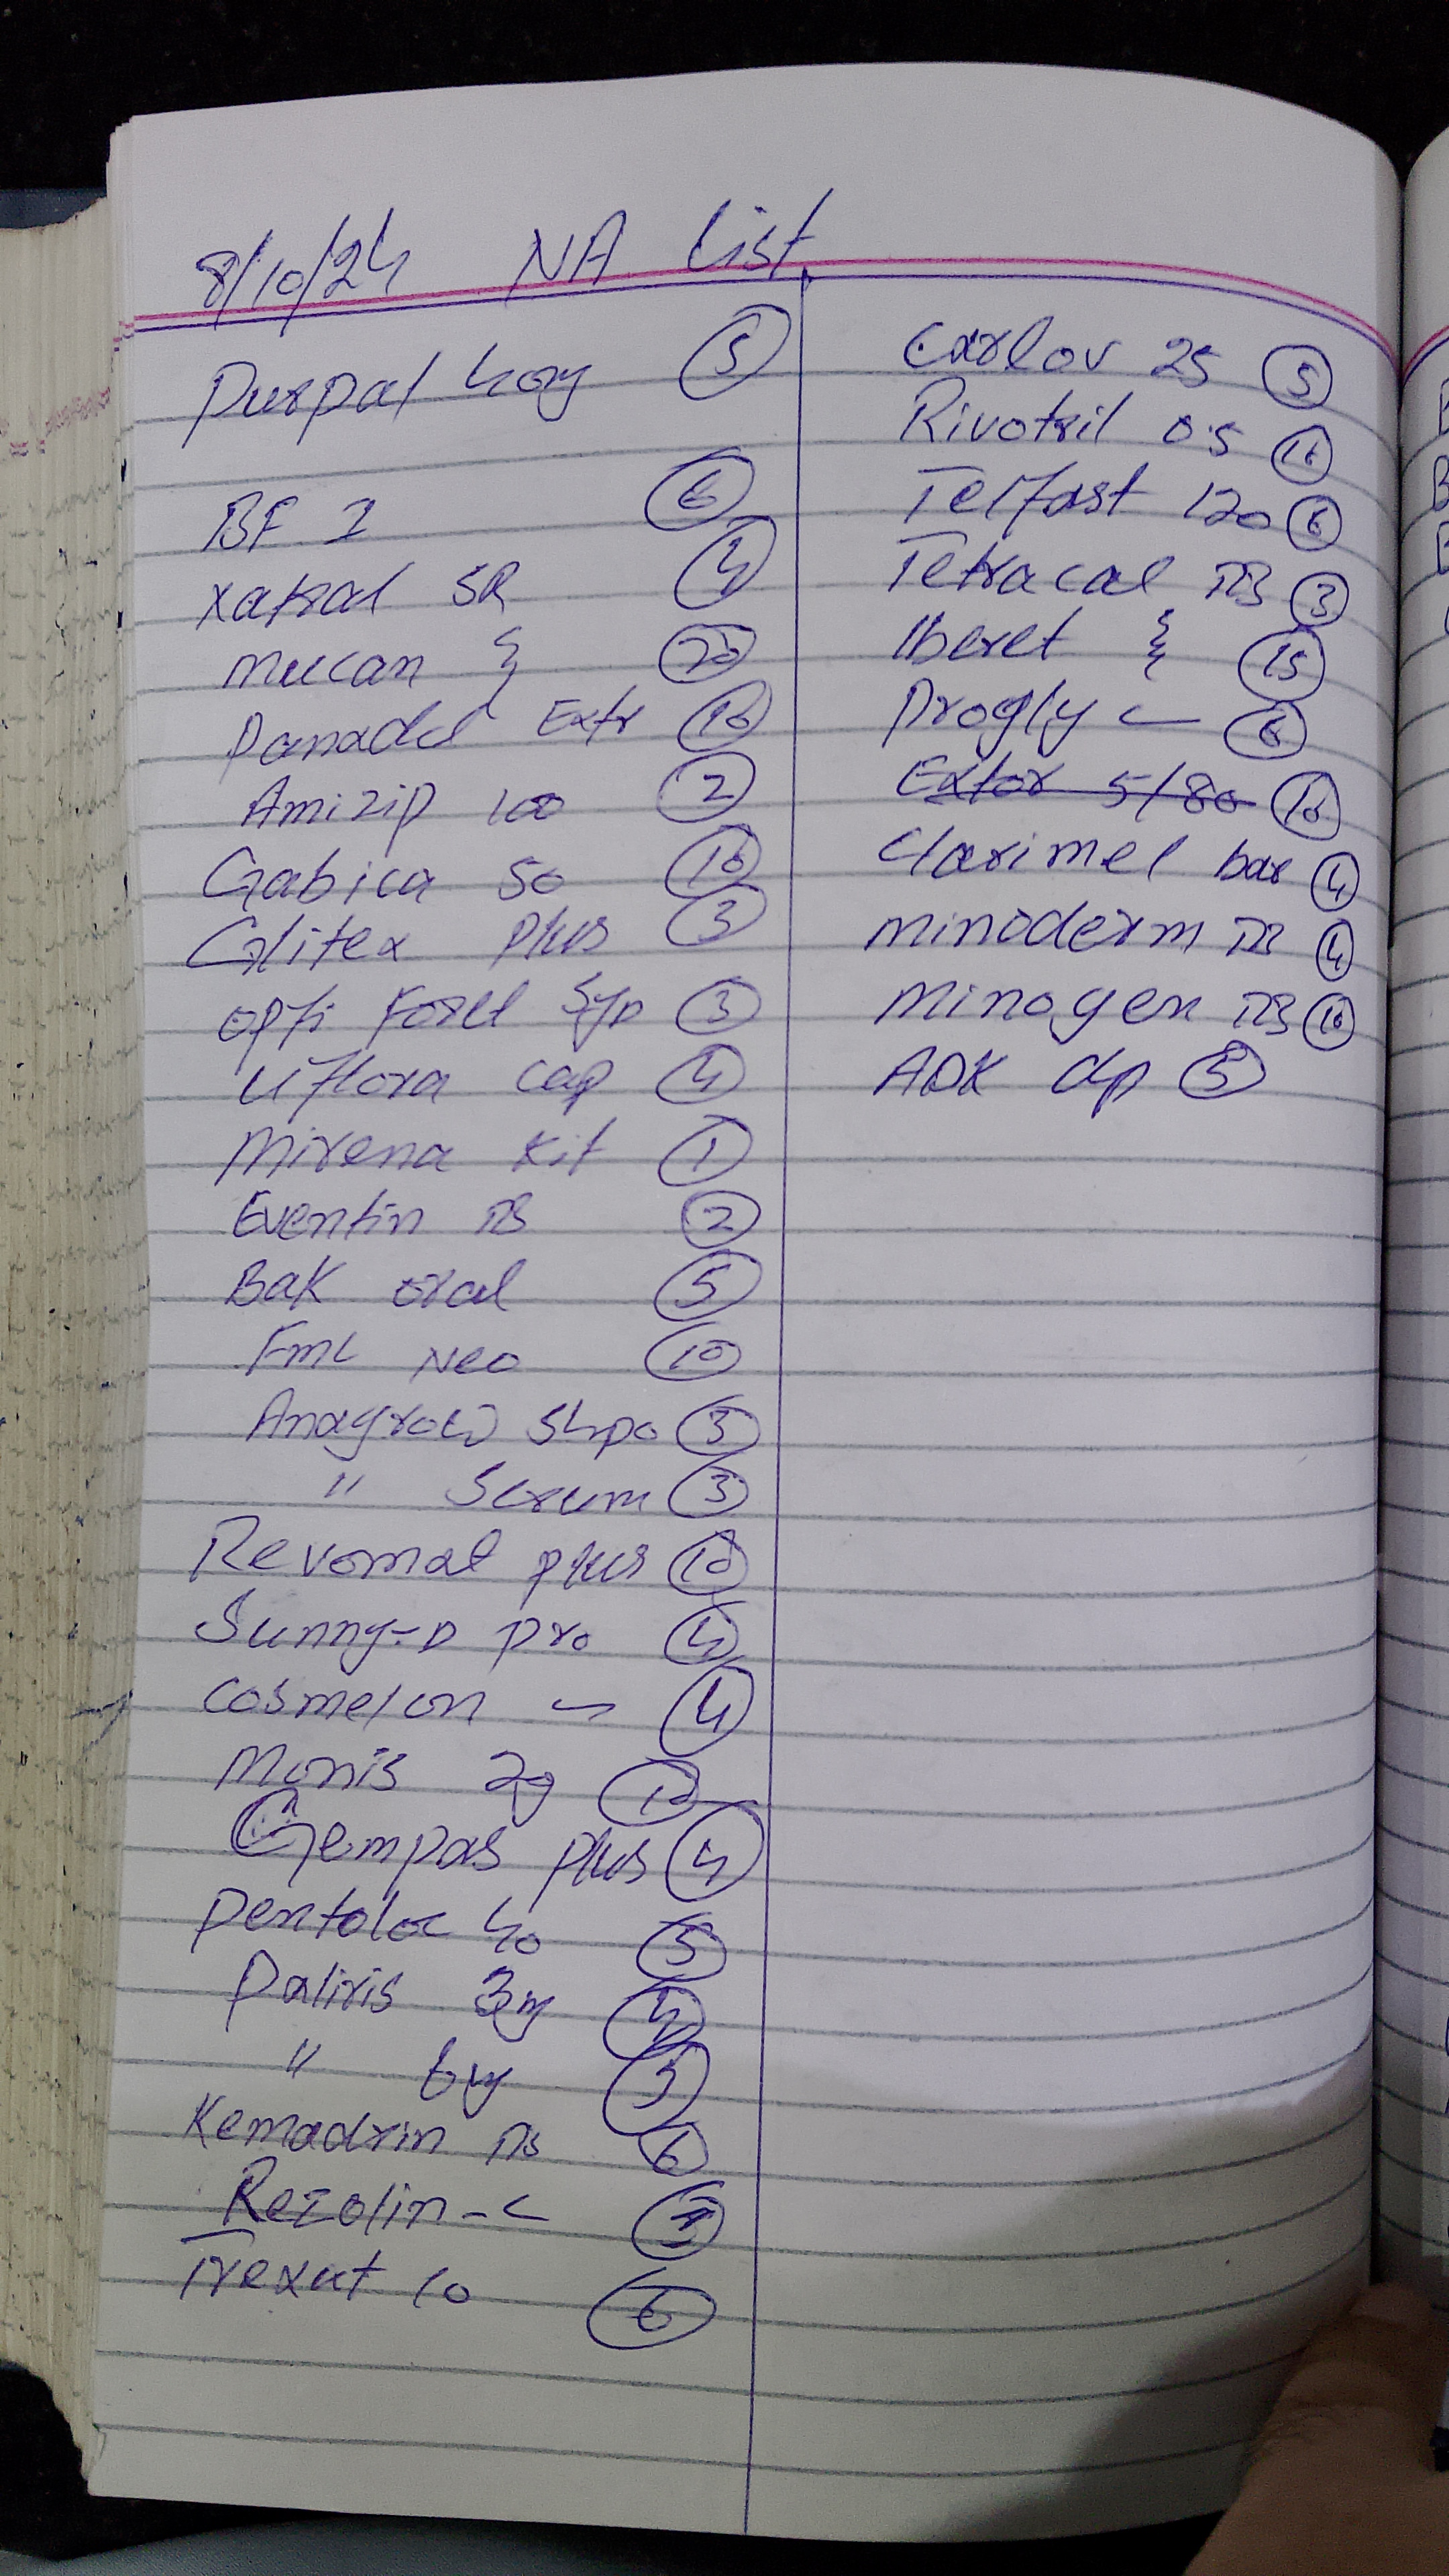 8/10/24 NA List
Purpal 40mg 5
BF 1 6
Xatral SR 4
Mucan 20
Panadol Extr 10
Amizip 100 2
Gabica 50 10
Glitex plus 3
opti Forte Syp 3
uflora cap 4
Mirena Kit 1
Eventin TB 2
Bak oral 5
FML Neo 10
Anagrow Shpo 3
" Serum 3
Revomat plus 10
Sunny-D pro 4
Cosmelon 4
Monis 20 10
Gempas plus 4
Pentoloc 40 5
Paliris 3mg 4
" 6mg 5
Kemadrin TB 6
Rezolin-C
Trexat 10 6
Carlov 25 5
Rivotril 0.5 10
Telfast 120 6
Tetracal TB 3
Iberet 15
Progly 6
Extor 5/80 10
Clarimel bar 4
Minoderm TB 4
Minogen TB 10
ADK dp 5